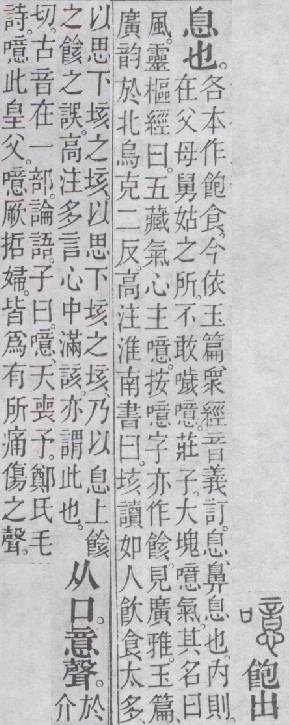 噫 飽出
息也。
各本作飽食。今依玉篇、衆經音義訂。息、鼻息也。內則
在父母舅姑之所。不敢噦噫。莊子。大塊噫氣。其名曰
風。靈樞經曰。五藏氣心主噫。按噫字亦作餩。見廣雅、玉篇
廣韵。於北烏克二反。高注淮南書曰。垓讀如人飲食太多
以思下垓之垓。以思下垓之垓。乃以息上餩
之餩之誤。高注多言心中滿該。亦謂此也。
从口。意聲。
於
介
切。古音在一部。論語。子曰。噫、天喪予。鄭氏毛
詩。噫此皇父。噫厥拓婦。皆爲有所痛傷之聲。